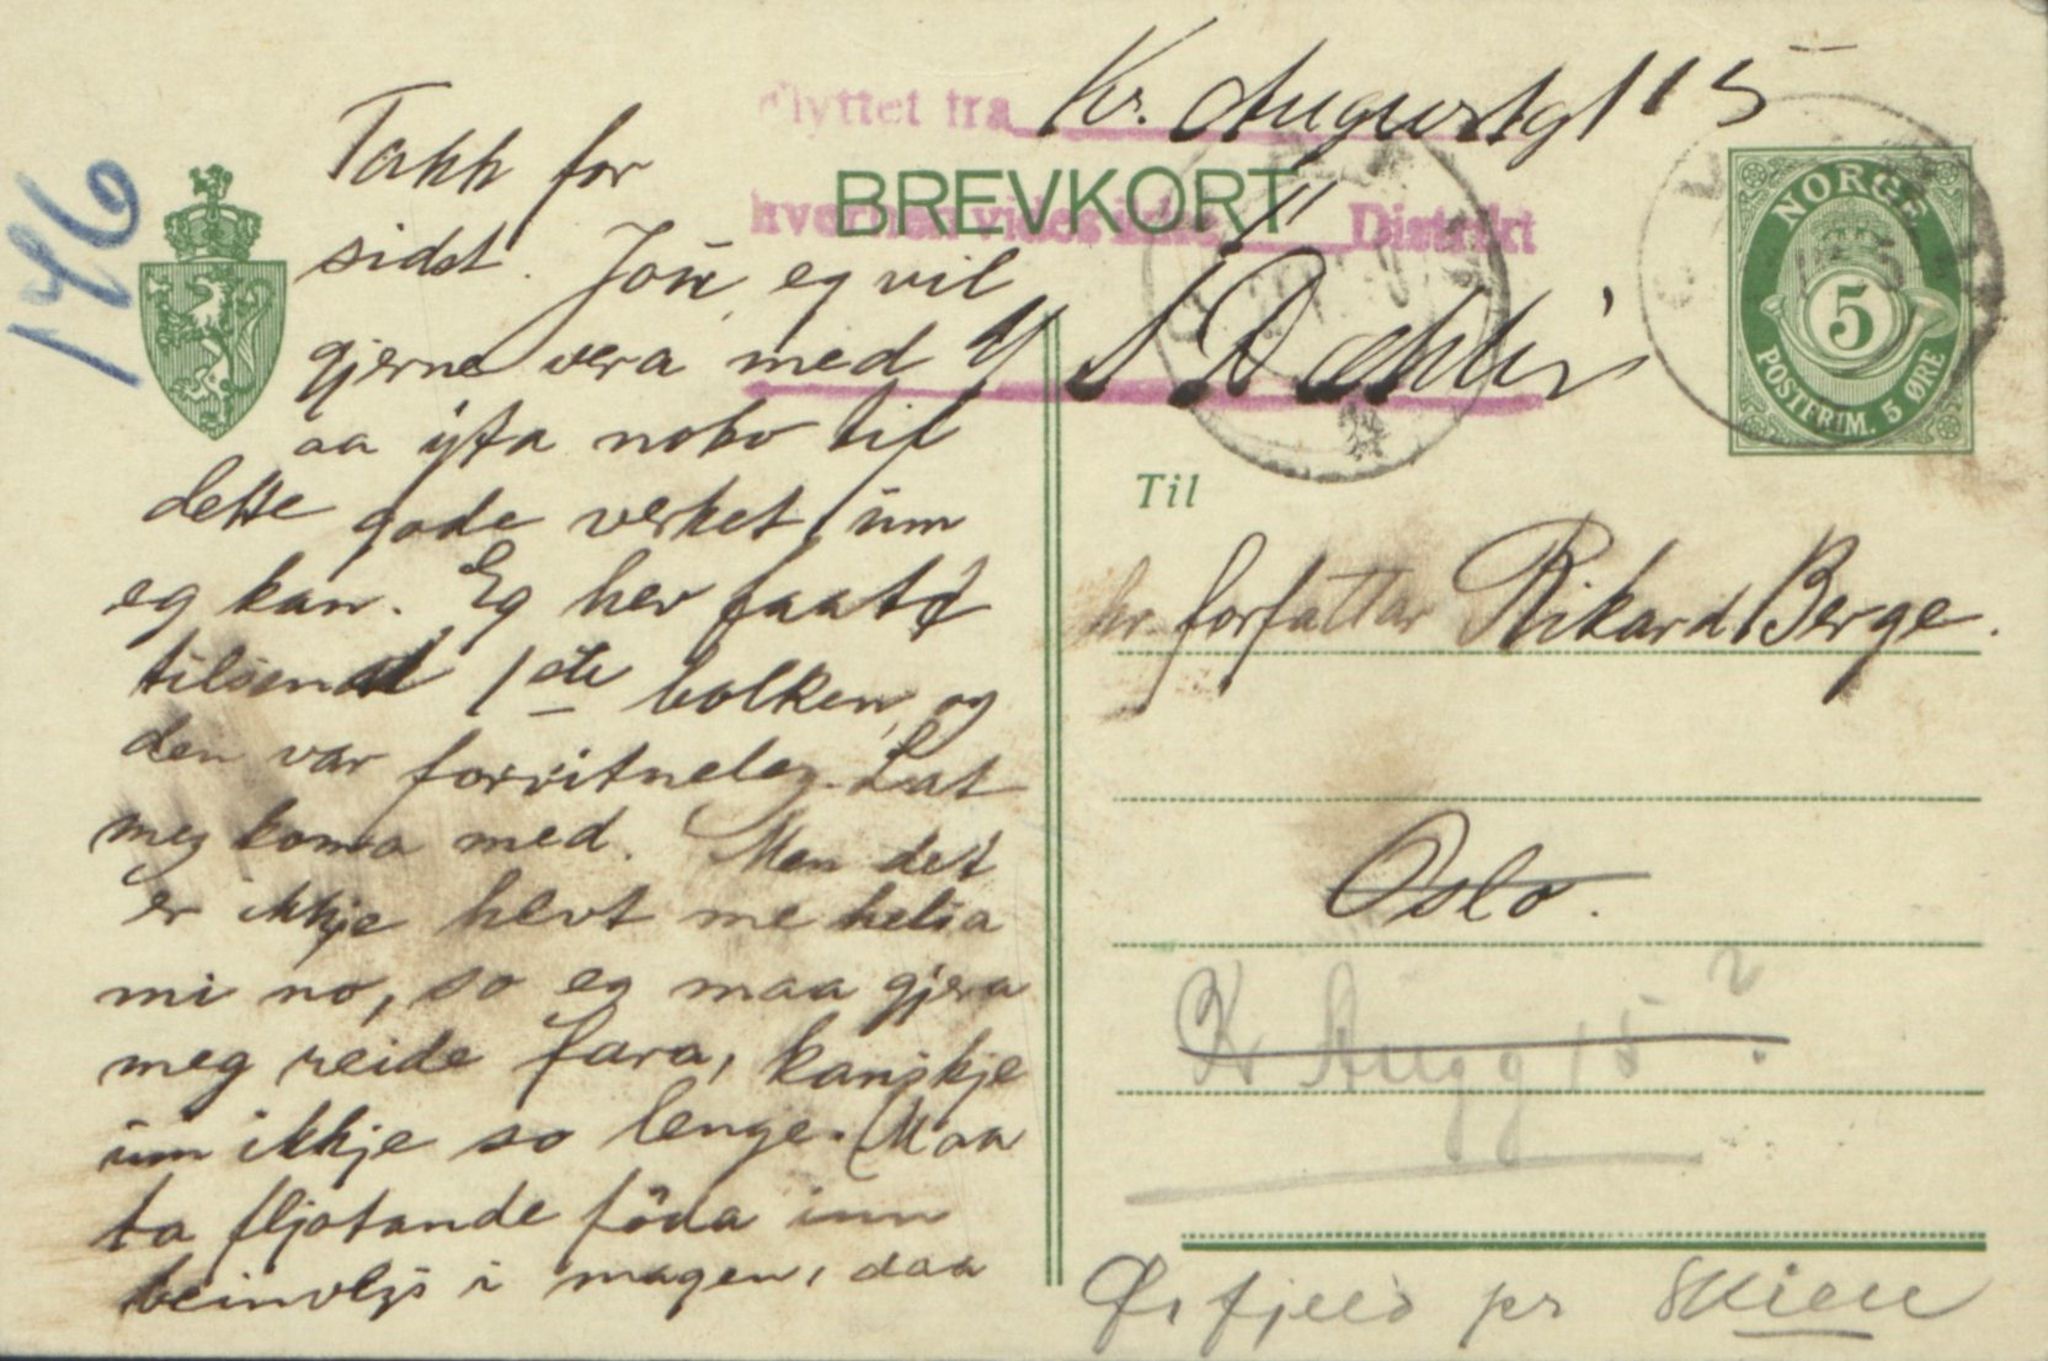 146
Takk for
sidst. Joū, eg vil
gjerne vera med
aa yta noko til
dette gode verket, ūm
eg kan. Eg hev faatt
tilsendt 1ste bolken, og
den var forvitneleg. Lat
meg koma med. Men det
er ikkje hevt me helsa
mi no, so eg maa gjera
meg reide fara, kanskje
ūm ikkje so lenge. Maa
ta fljotande föda inn
beinvegs i magen, daa
Flyttet fra Kr. Augustgt 15
BREVKORT
hvorhen vides ikke 11 Distrikt
NORGE
5
POSTFRIM. 5 ØRE
Til
hr. forfattar Rikard Berge.
Oslo.
K Augg 15 ?
Ørfjeld pr Skien